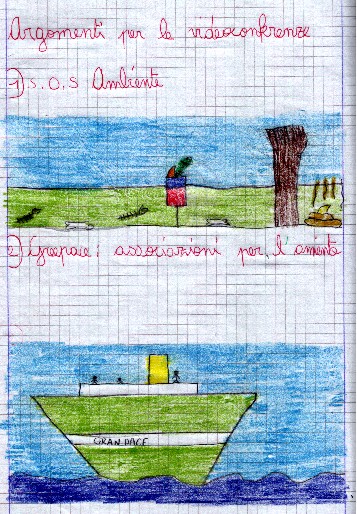 Argomenti per la videoconferenze
1) S.O.S Ambiente
2) Greepaic: associazioni per l'amente
GRAN PACE